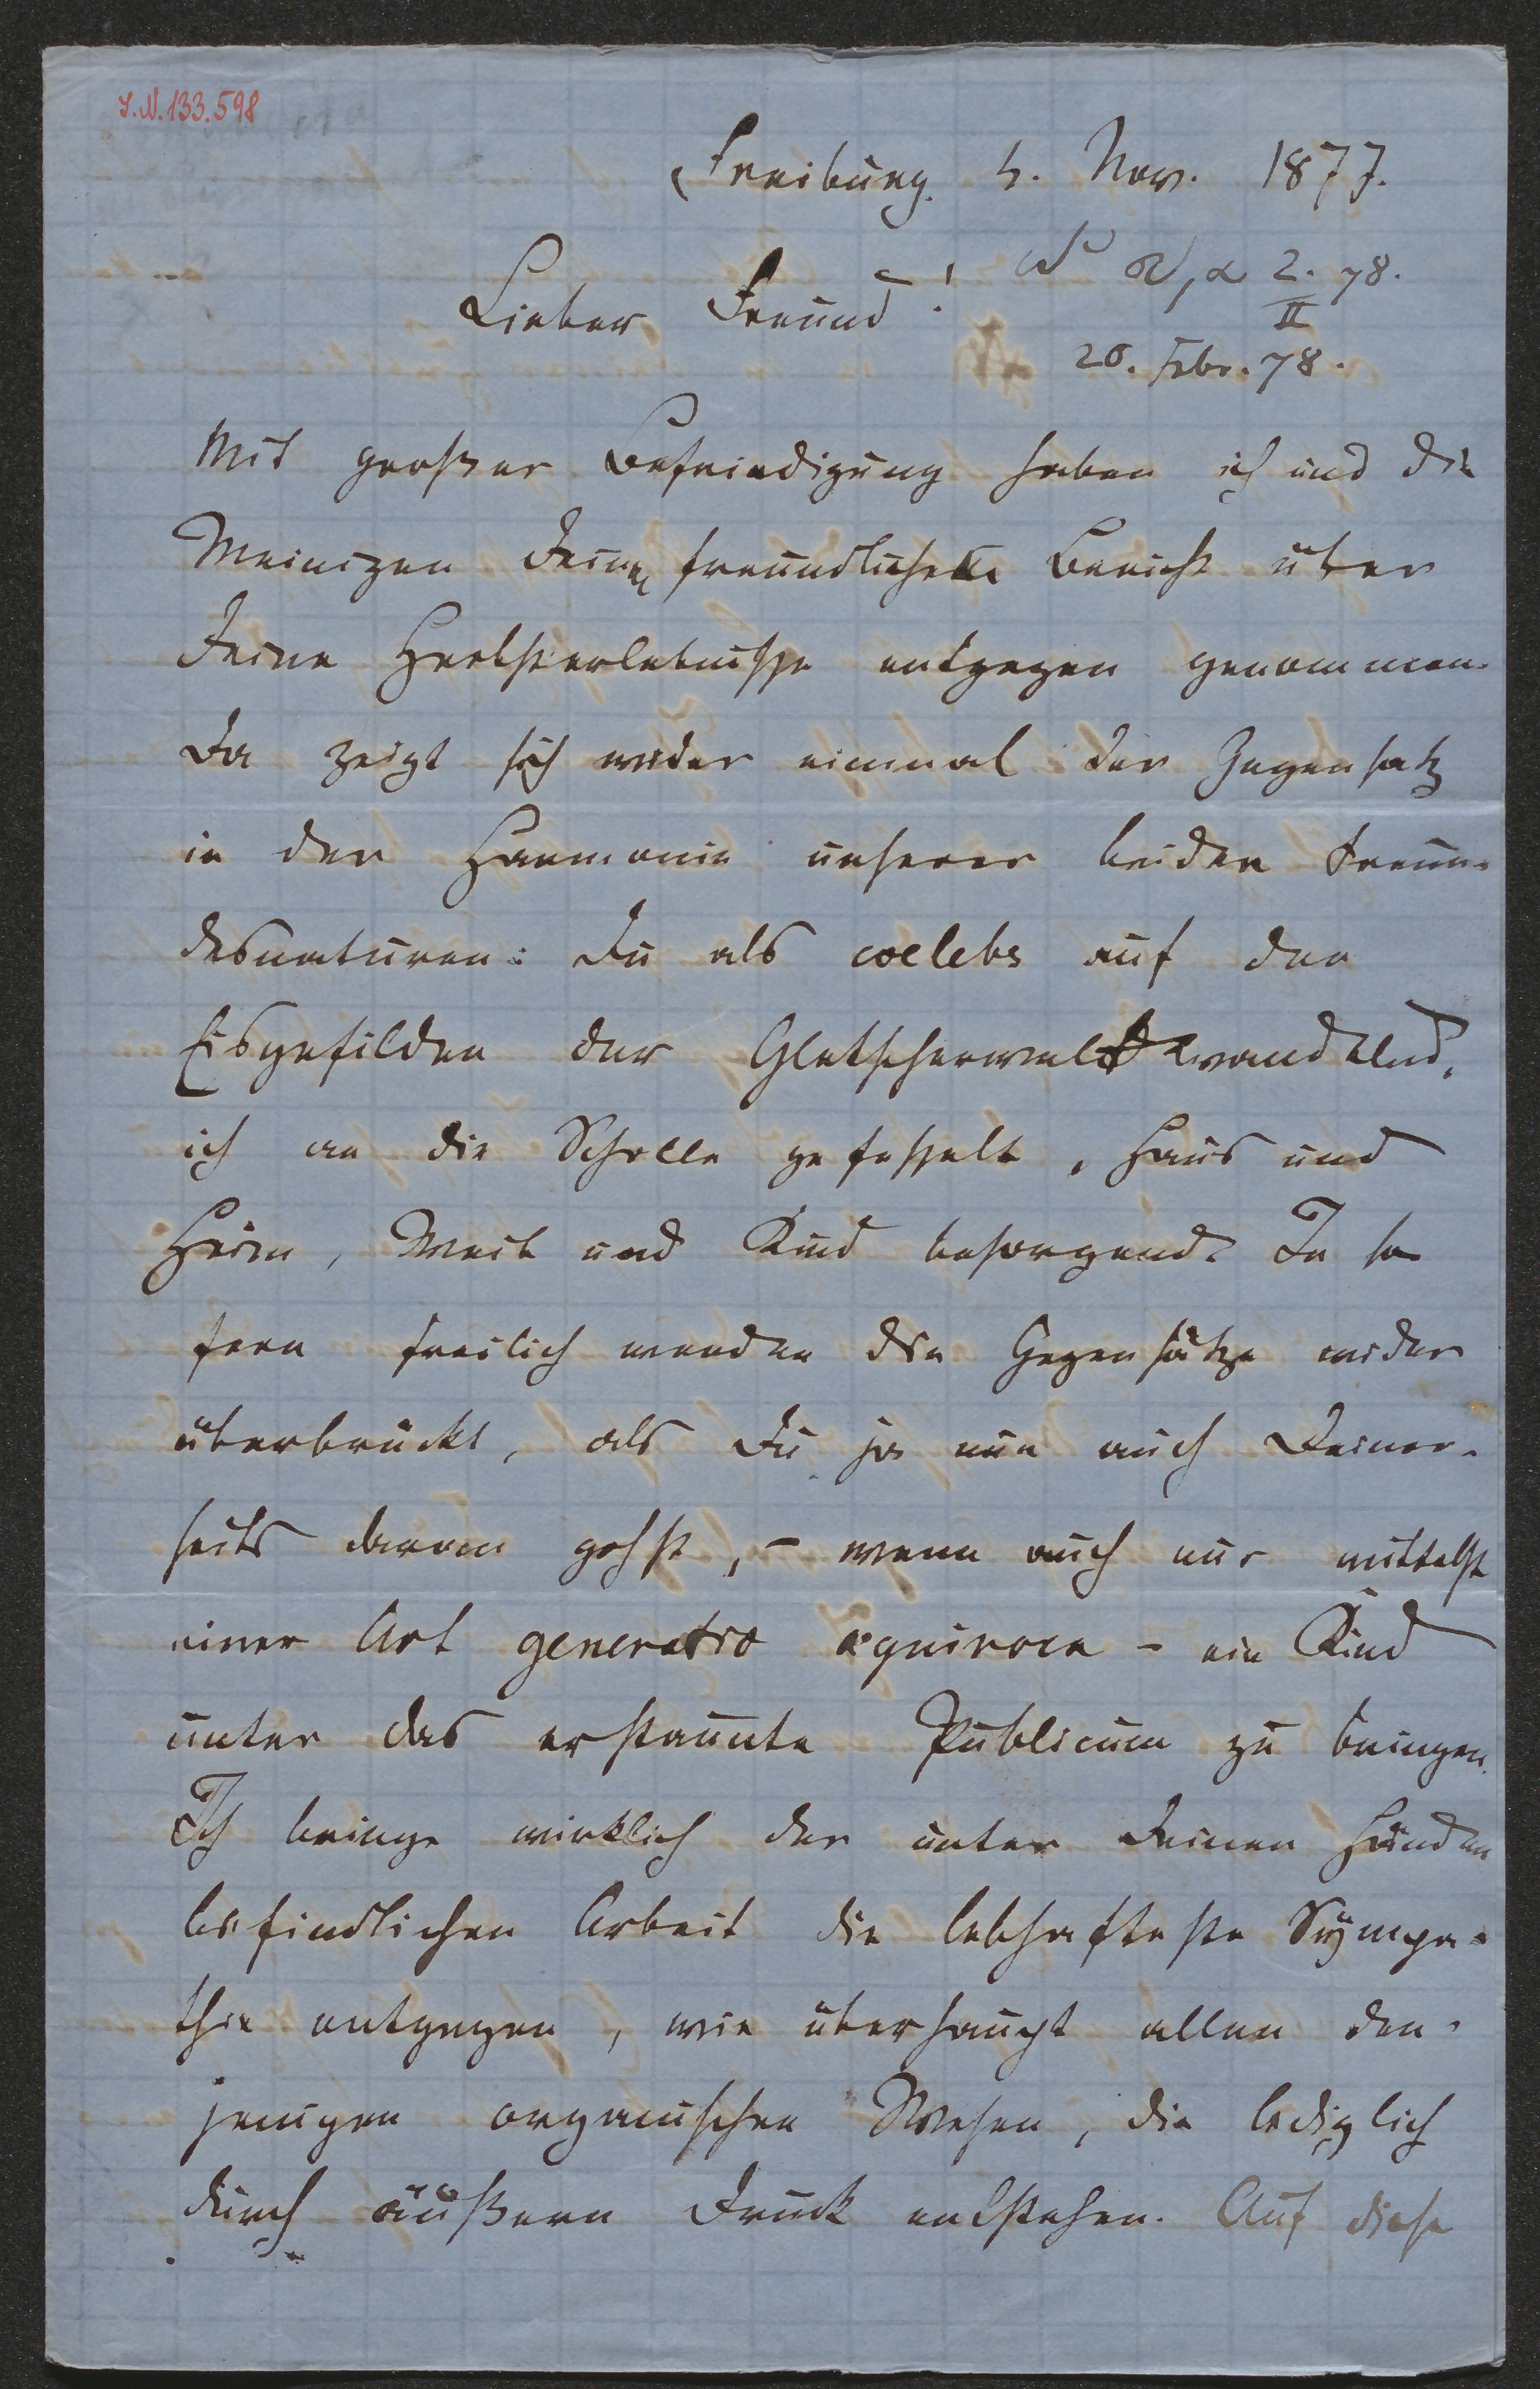 I.N. 133.598
Freiburg. 4. Nov. 1877.
Lieber Freund!
2. 78.
II
20. Febr. 78.
Mit großer Befriedigung haben ich und die
Meinigen Deinen freundlichen Bericht über
Deine Herbsterlebnisse entgegen genommen.
Da zeigt sich wider einmal der Gegensatz
in der Harmonie unserer beiden Freun-
desnaturen: Du als coelebs auf den
Eisgefilden der Gletscherwelt wandelnd,
ich an die Scholle gefesselt, Haus und
Heim, Weib und Kind besorgend. In so
fern freilich werden die Gegensätze wider
überbrückt, als Du ja nun auch Deiner-
seits daran gehst, – wenn auch nur mittelst
einer Art generatio æquivoca – ein Kind
unter das erstaunte Publicum zu bringen.
Ich bringe wirklich der unter Deinen Händen
befindlichen Arbeit die lebhafteste Sympa-
thie entgegen, wie überhaupt allen den-
jenigen organischen Wesen, die lediglich
durch äußern Druck entstehen. Auf diese